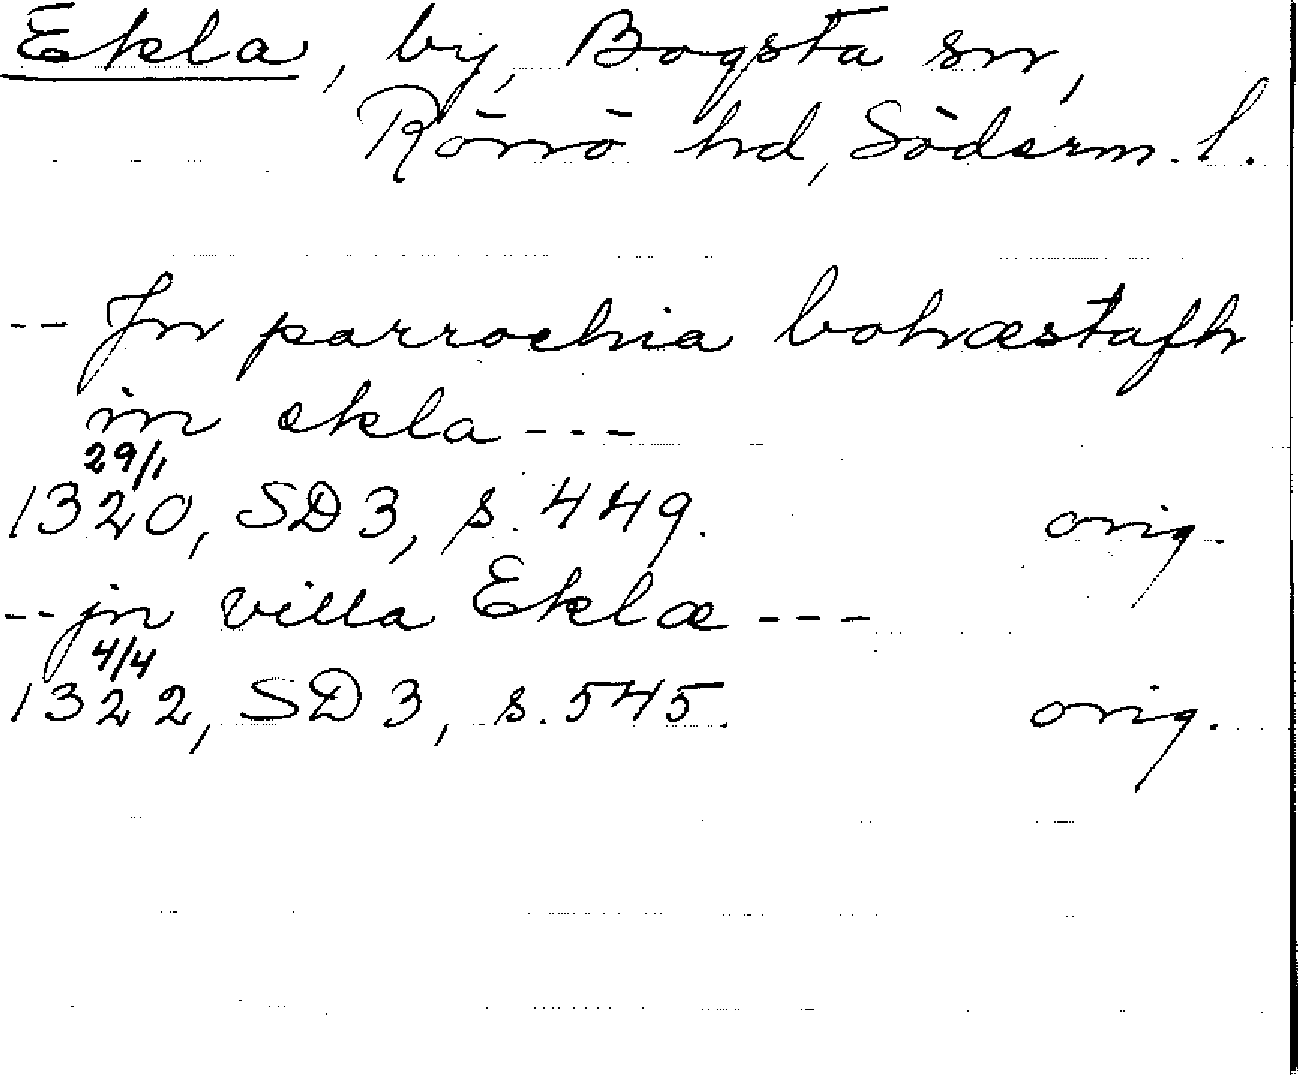 Ekla, by, Bogsta sn,
Rönö hd, Söderm. l.
-- Jn parrochia bohæstafh
in ekla ---
29/1
1320, SD 3, s. 449. orig.
-- jn villa Eklæ ---
4/4
1322, SD 3, s. 545. orig.